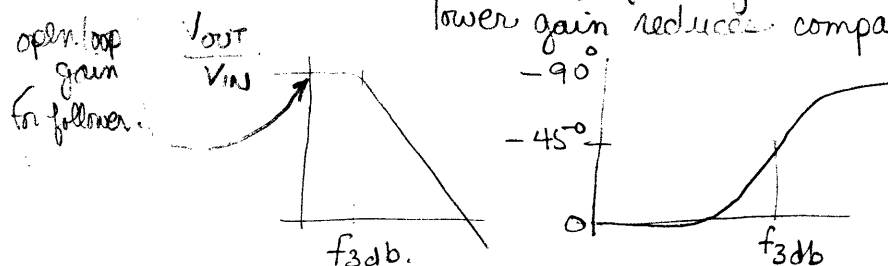 lower gain reduces compa
open loop
gain
for follower.
VOUT
VIN
f3db.
-90°
-45°
0
f3db